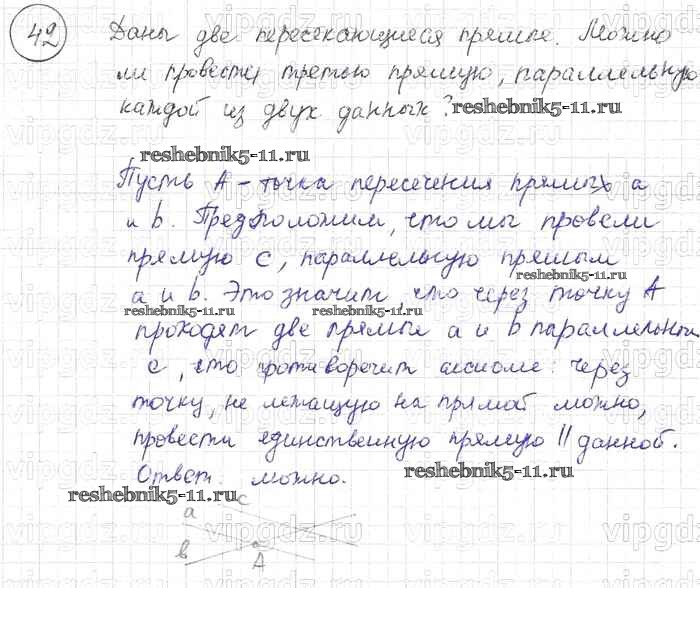 42 Даны две пересекающиеся прямые. Можно
ли провести третью прямую, параллельную
каждой из двух данных? reshebnik5-11.ru
reshebnik5-11.ru
Пусть А - точка пересечения прямых a
и b. Предположим, что мы провели
прямую c, параллельную прямым
reshebnik5-11.ru
a и b. Это значит, что через точку А
reshebnik5-11.ru reshebnik5-11.ru
проходят две прямые a и b параллельной
c, что противоречит аксиоме: через
точку, не лежащую на прямой можно,
провести единственную прямую || данной.
Ответ: можно. reshebnik5-11.ru
reshebnik5-11.ru c
a
b A
vipgdz.ru vipgdz.ru vipgdz.ru